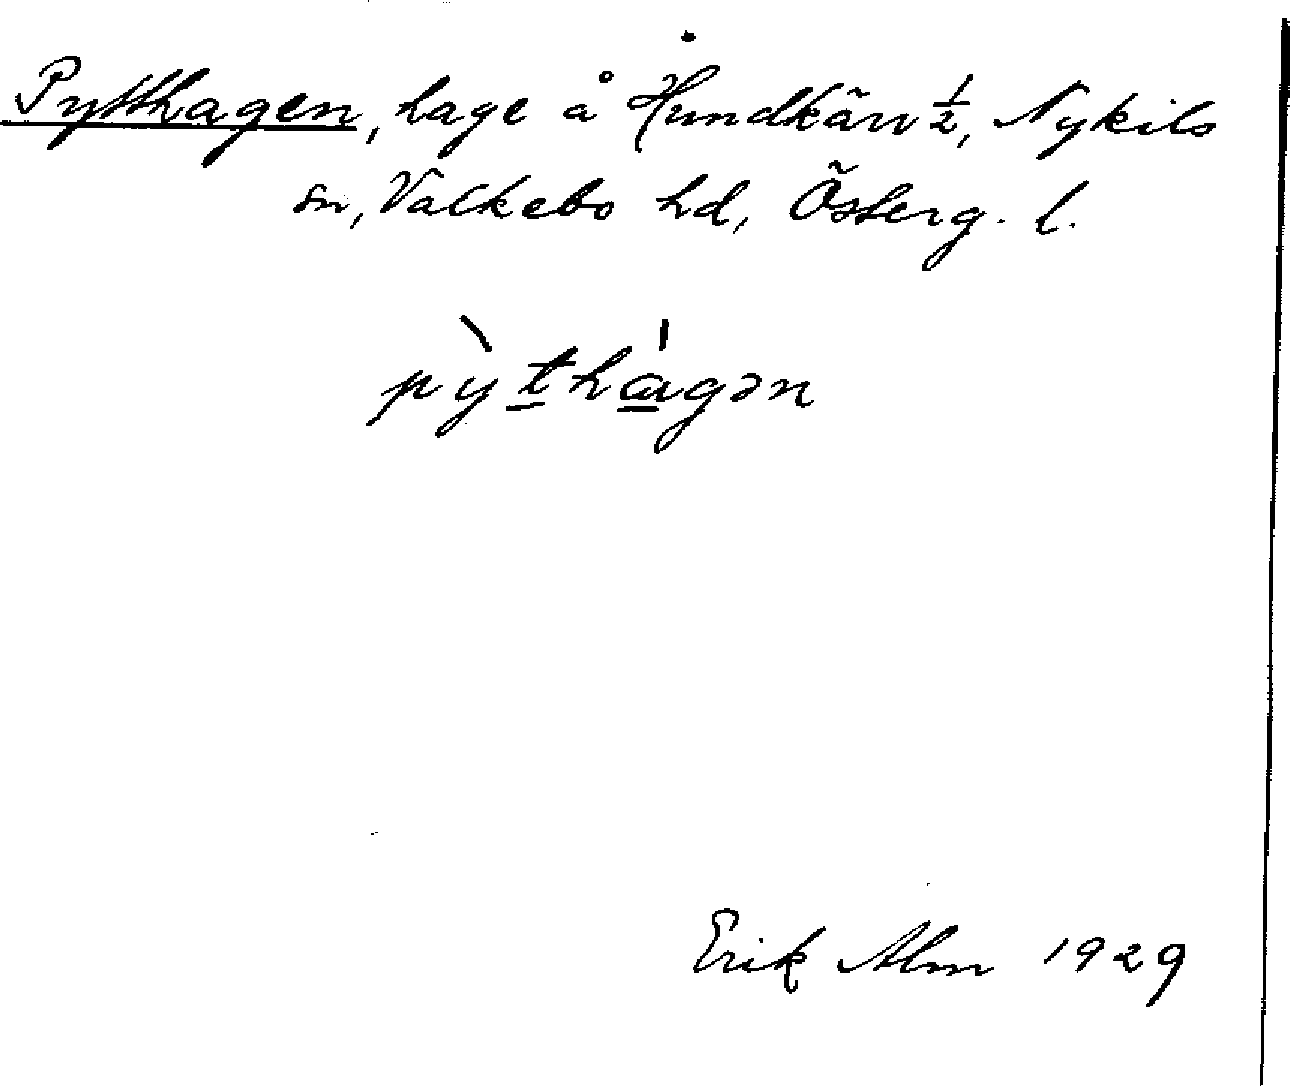 Pytthagen, hage å Hundkärr ½, Nykils
sn, Valkebo hd, Österg. l.
pỳthágən
Erik Alm 1929